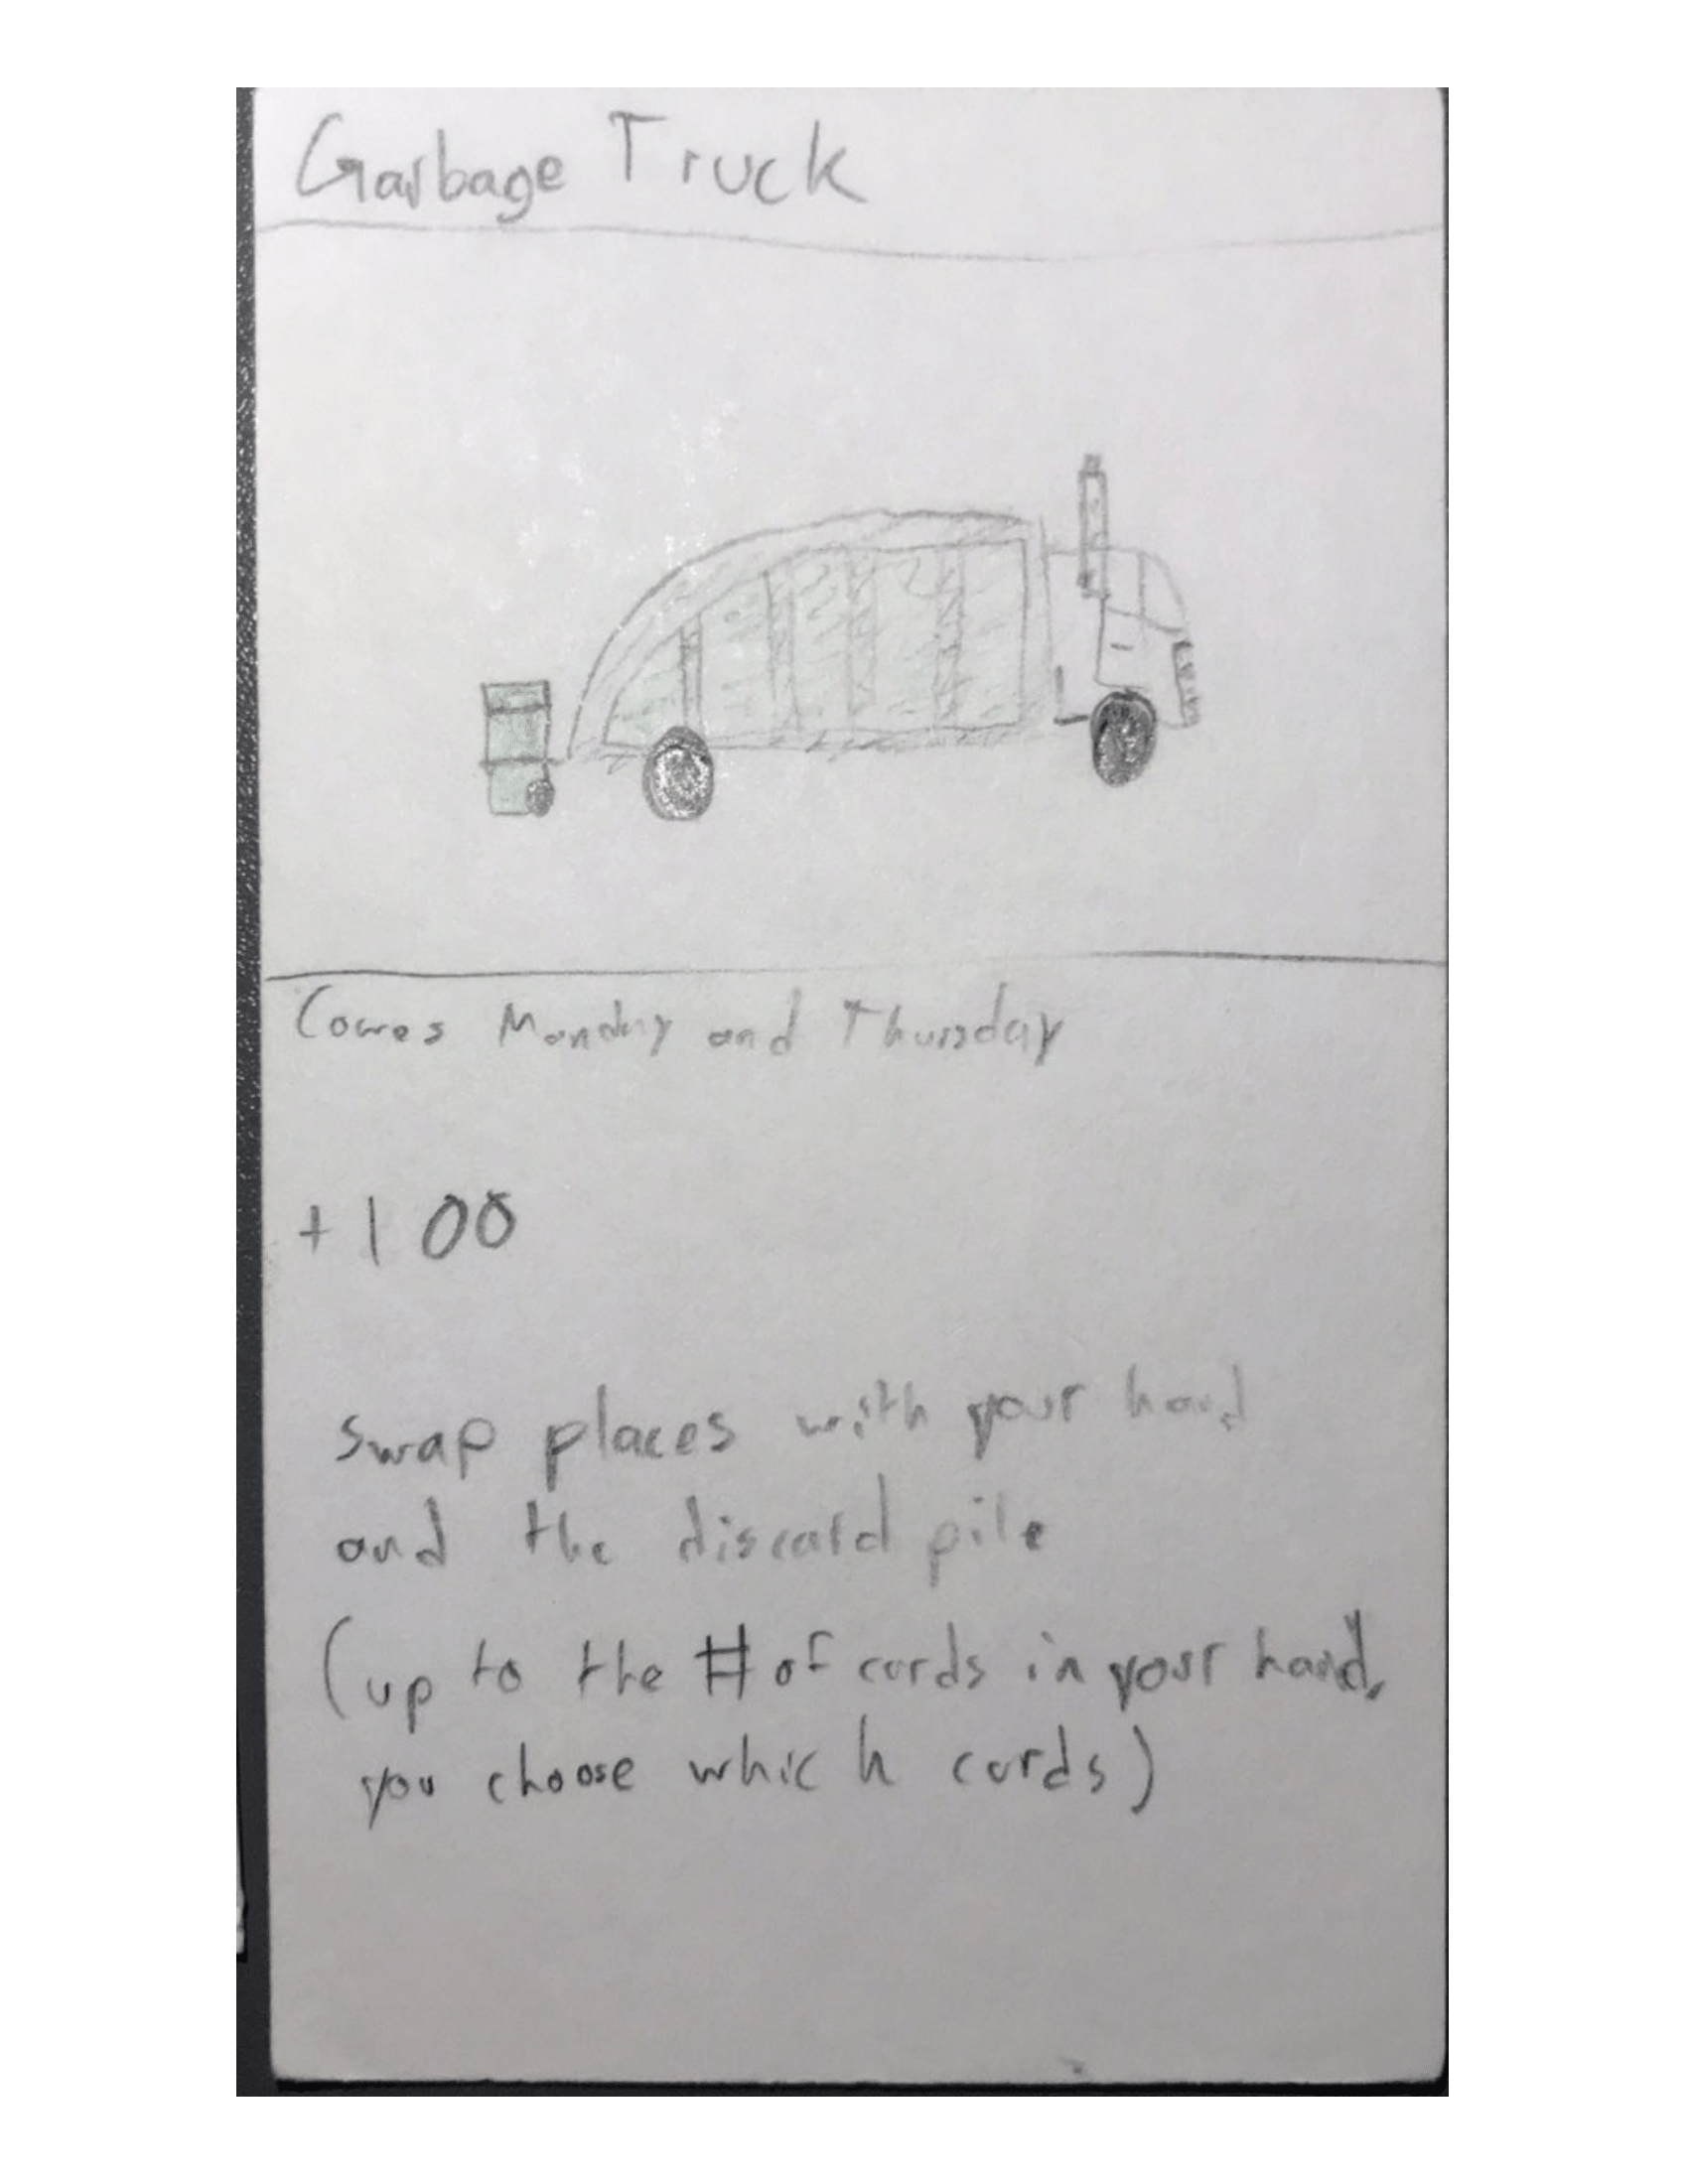 Garbage Truck
Comes Monday and Thursday
+100
swap places with your hand
and the discard pile
(up to the # of cards in your hand,
you choose which cards)